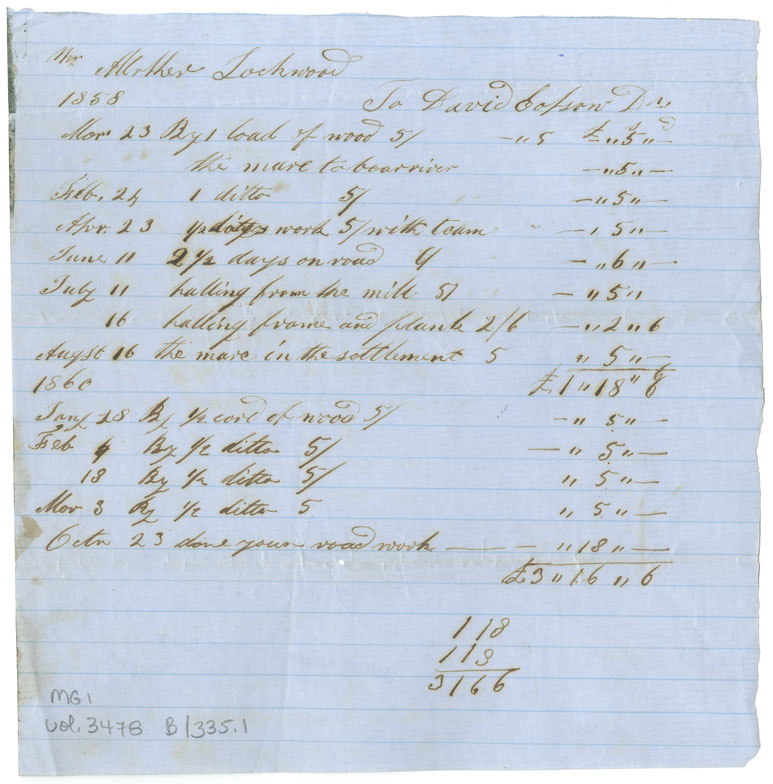 Mr Lockwood
1858 To David Dr
£ s d
Mar 23 By 1 load of wood 5/ -"5 -"5"-
the mare to bearriver -"5"-
Feb. 24 1 ditto 5/ -"5"-
Apr 23 work 5/ with team - , 5"-
June 11 2 1/2 days on road -"6"-
July 11 halling from the mill 5/ -"5"
16 halling frame and plank 2/6 -"2"6
Augst 16 the mare in the settlement 5 "5"-
1860 £1"18"6
Jany 28 By 1/2 cord of wood 5/ -"5"-
Feb By 1/2 ditto 5/ -"5"-
18 By 1/2 ditto 5/ "5"-
Mar 3 By 1/2 ditto 5 "5"-
Octr 23 done your road work - "18"-
£3"16"6
118
3166
MG1
vol. 3478 B/335.1